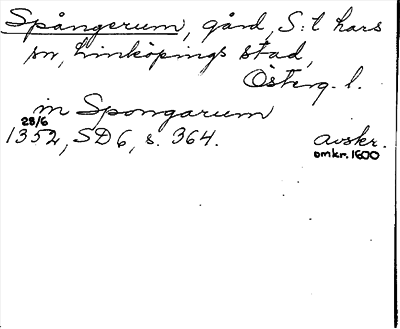 Spångerum, gård, S:t Lars
sn, Linköpings stad,
Österg. l.
in Spongarum
28/6
1352, SD 6, s. 364. avskr.
omkr. 1600